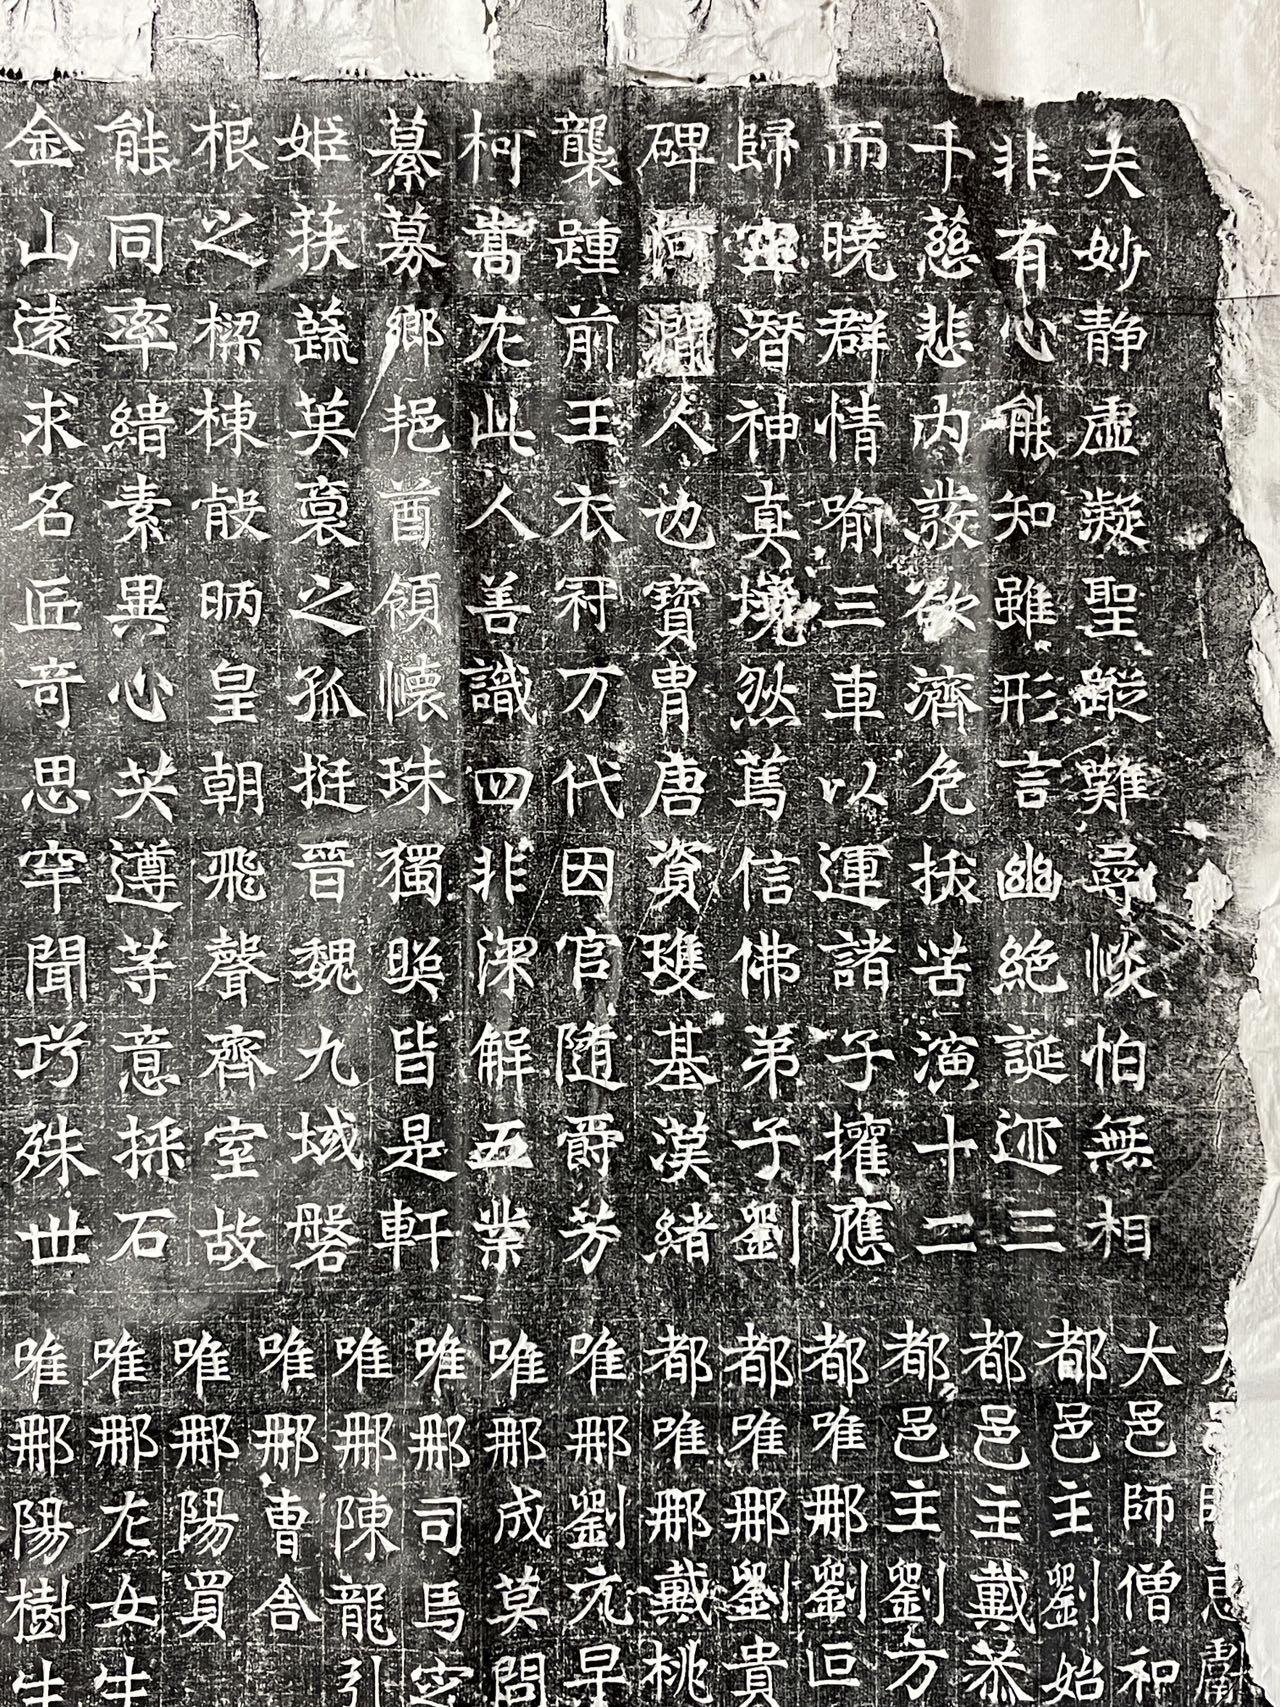 夫妙静虛凝聖蹤難尋惔怕無相
非有心能知雖形言幽絶誕迹三
千慈悲內發欲濟免拔苦演十二
而曉群情喻三車以運諸子擢應
歸空潛神真境然焉信佛弟子劉
碑河澗人也寶胄唐資瓊基漢緒
襲踵前王衣冠万代因官隨爵芳
柯嵩左此人善識四非深解五業
纂募鄉邑酋領懷珠獨照皆是軒
姬扶蔬英裒之孤挺晉魏九域磐
根之樑棟殷昞皇朝飛聲齊室故
能同率緇素異心共遵等意採石
金山遠求名匠奇思罕聞巧殊世
惠獻
大邑師僧和
都邑主劉始
都邑主戴恭
都邑主劉方
都唯那劉叵
都唯那劉貴
都唯那戴桃
唯那劉元早
唯那成莫問
唯那司馬
唯那陳龍引
唯那曹舍
唯那陽買
唯那左女生
唯那陽樹生